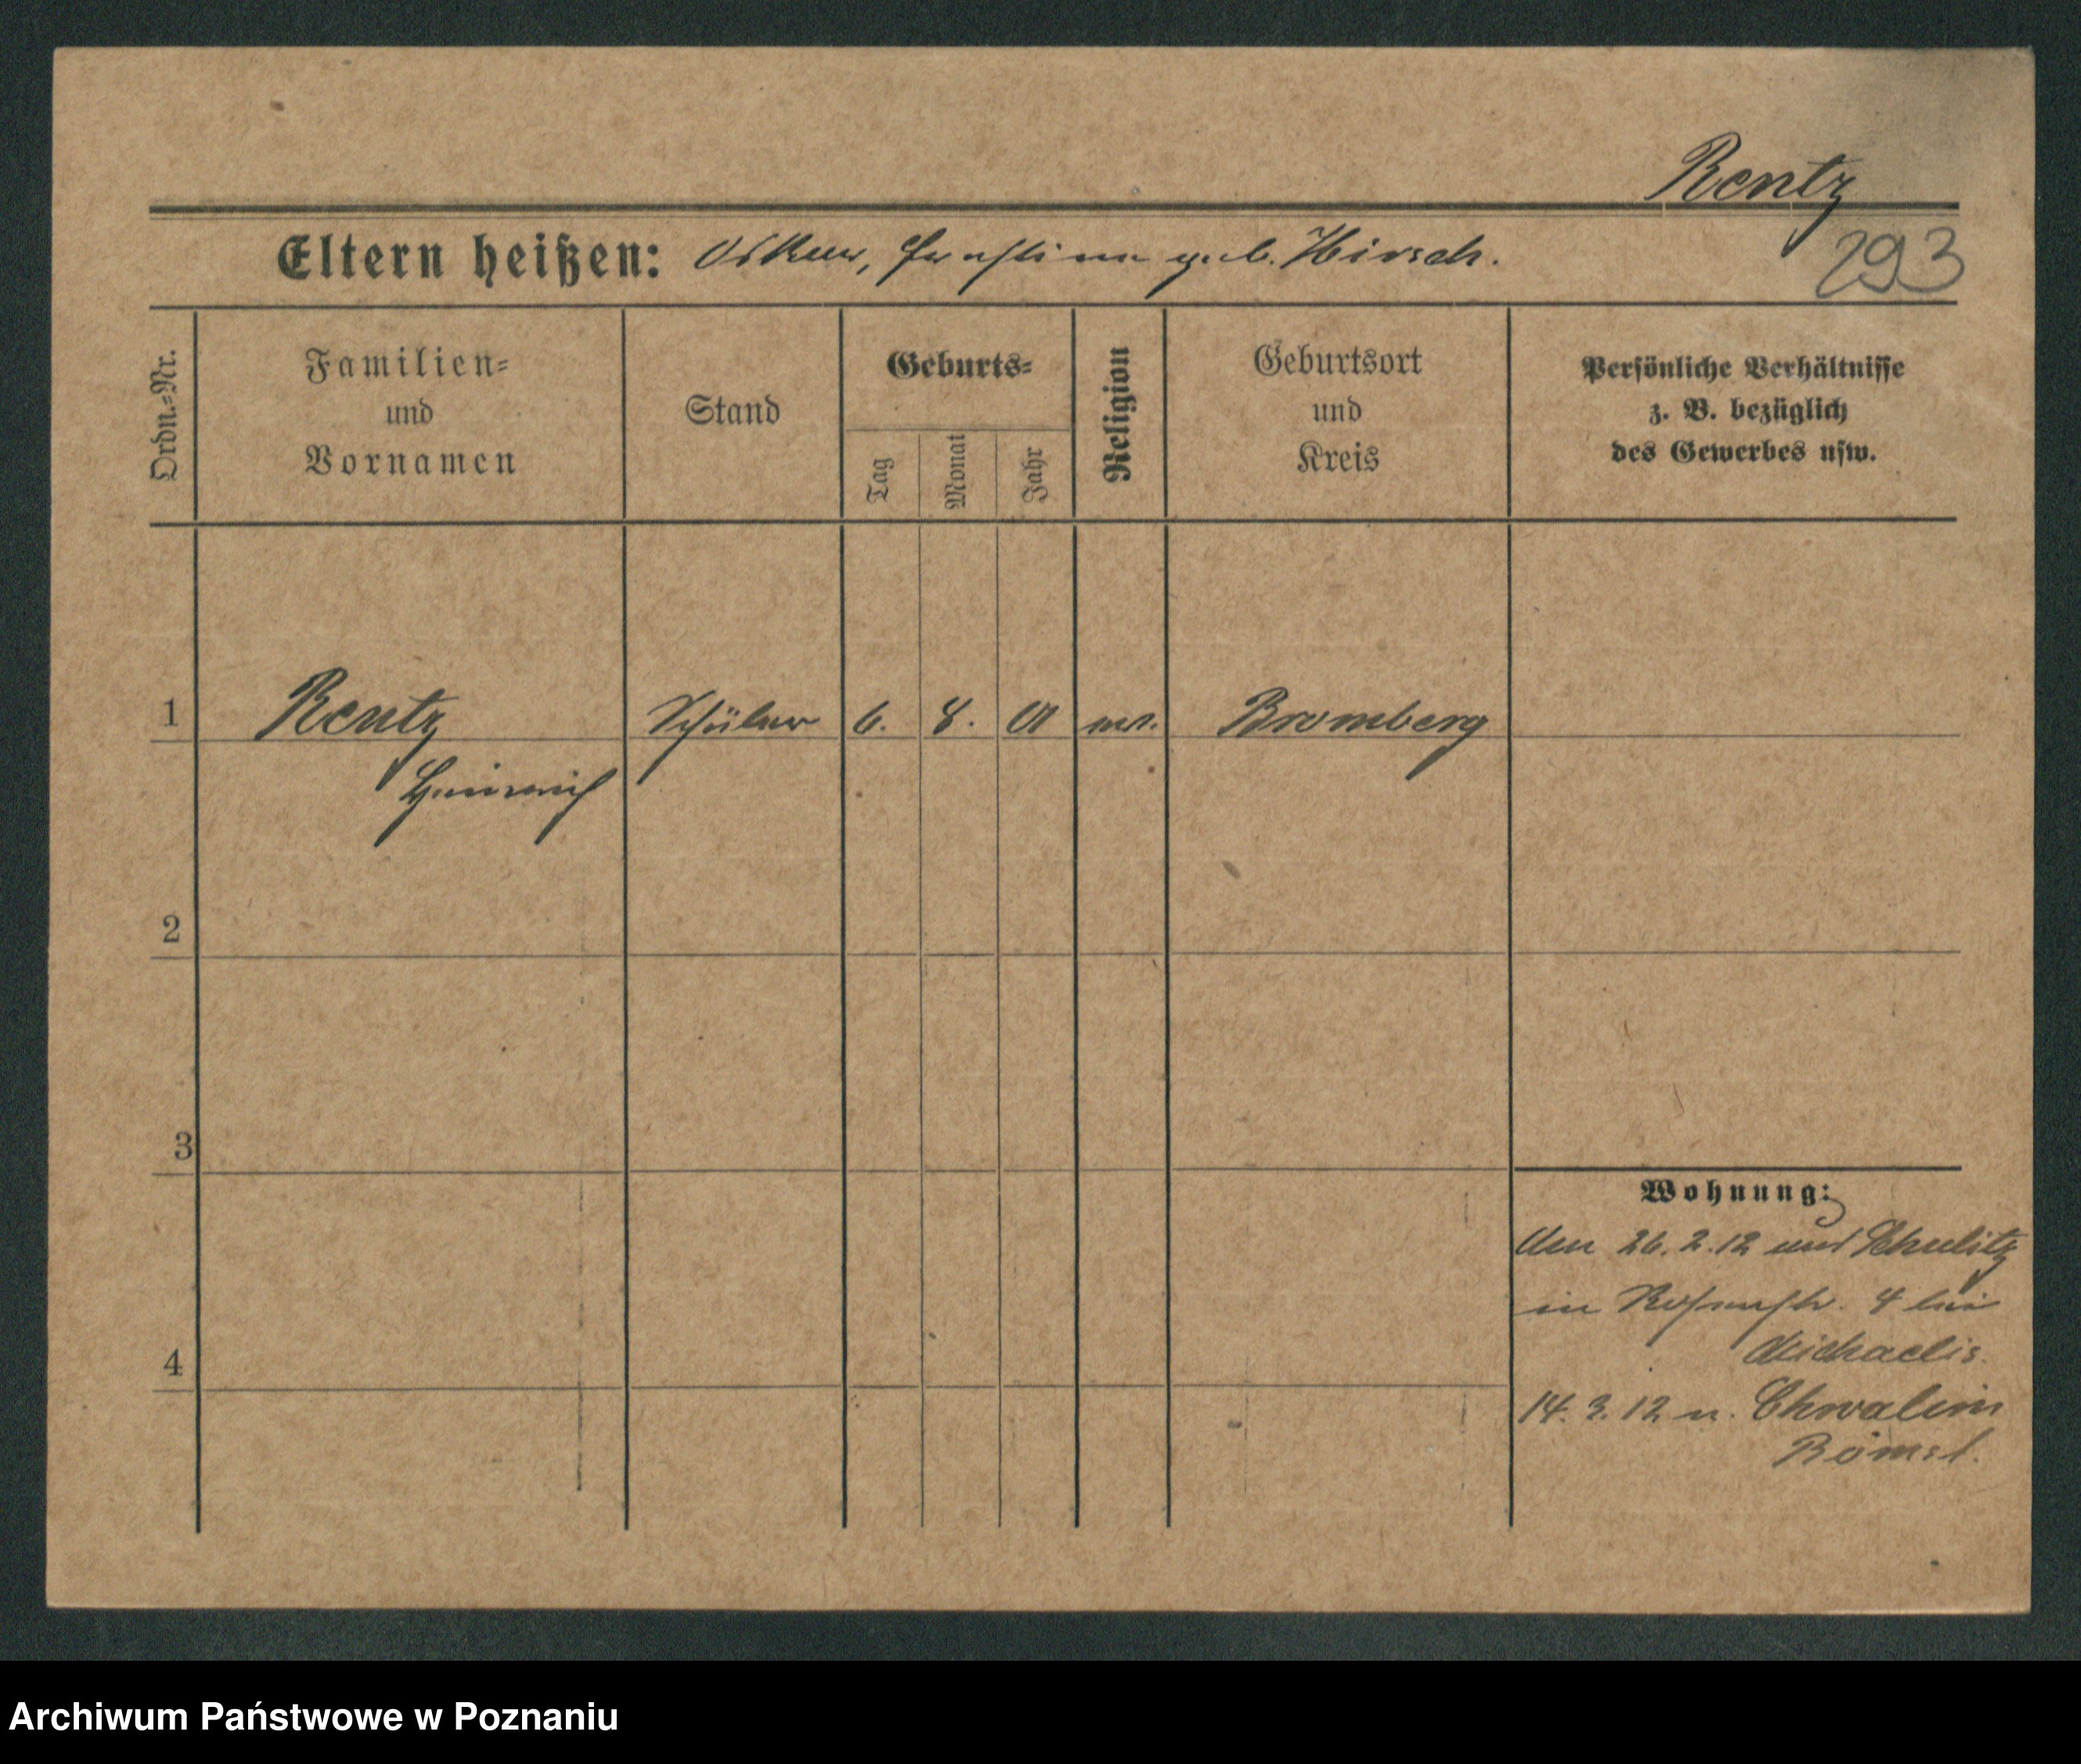 Rentz
293
Eltern heißen: Oskar, Ernstine geb. Hirsch.
Ordn.-Nr.
Familien-
und
Vornamen
Stand
Geburts-
Tag
Monat
Jahr
Religion
Geburtsort
und
Kreis
Persönliche Verhältnisse
z. B. bezüglich
des Gewerbes usw.
1 Rentz Schüler 6. 8. 01 Bromberg
Heinrich
2
3
4
Wohnung:
26. 2. 12 Schulitz
in 4 bei
Michaelis.
14. 3. 12 n. Chwalim
Bomst.
Archiwum Państwowe w Poznaniu